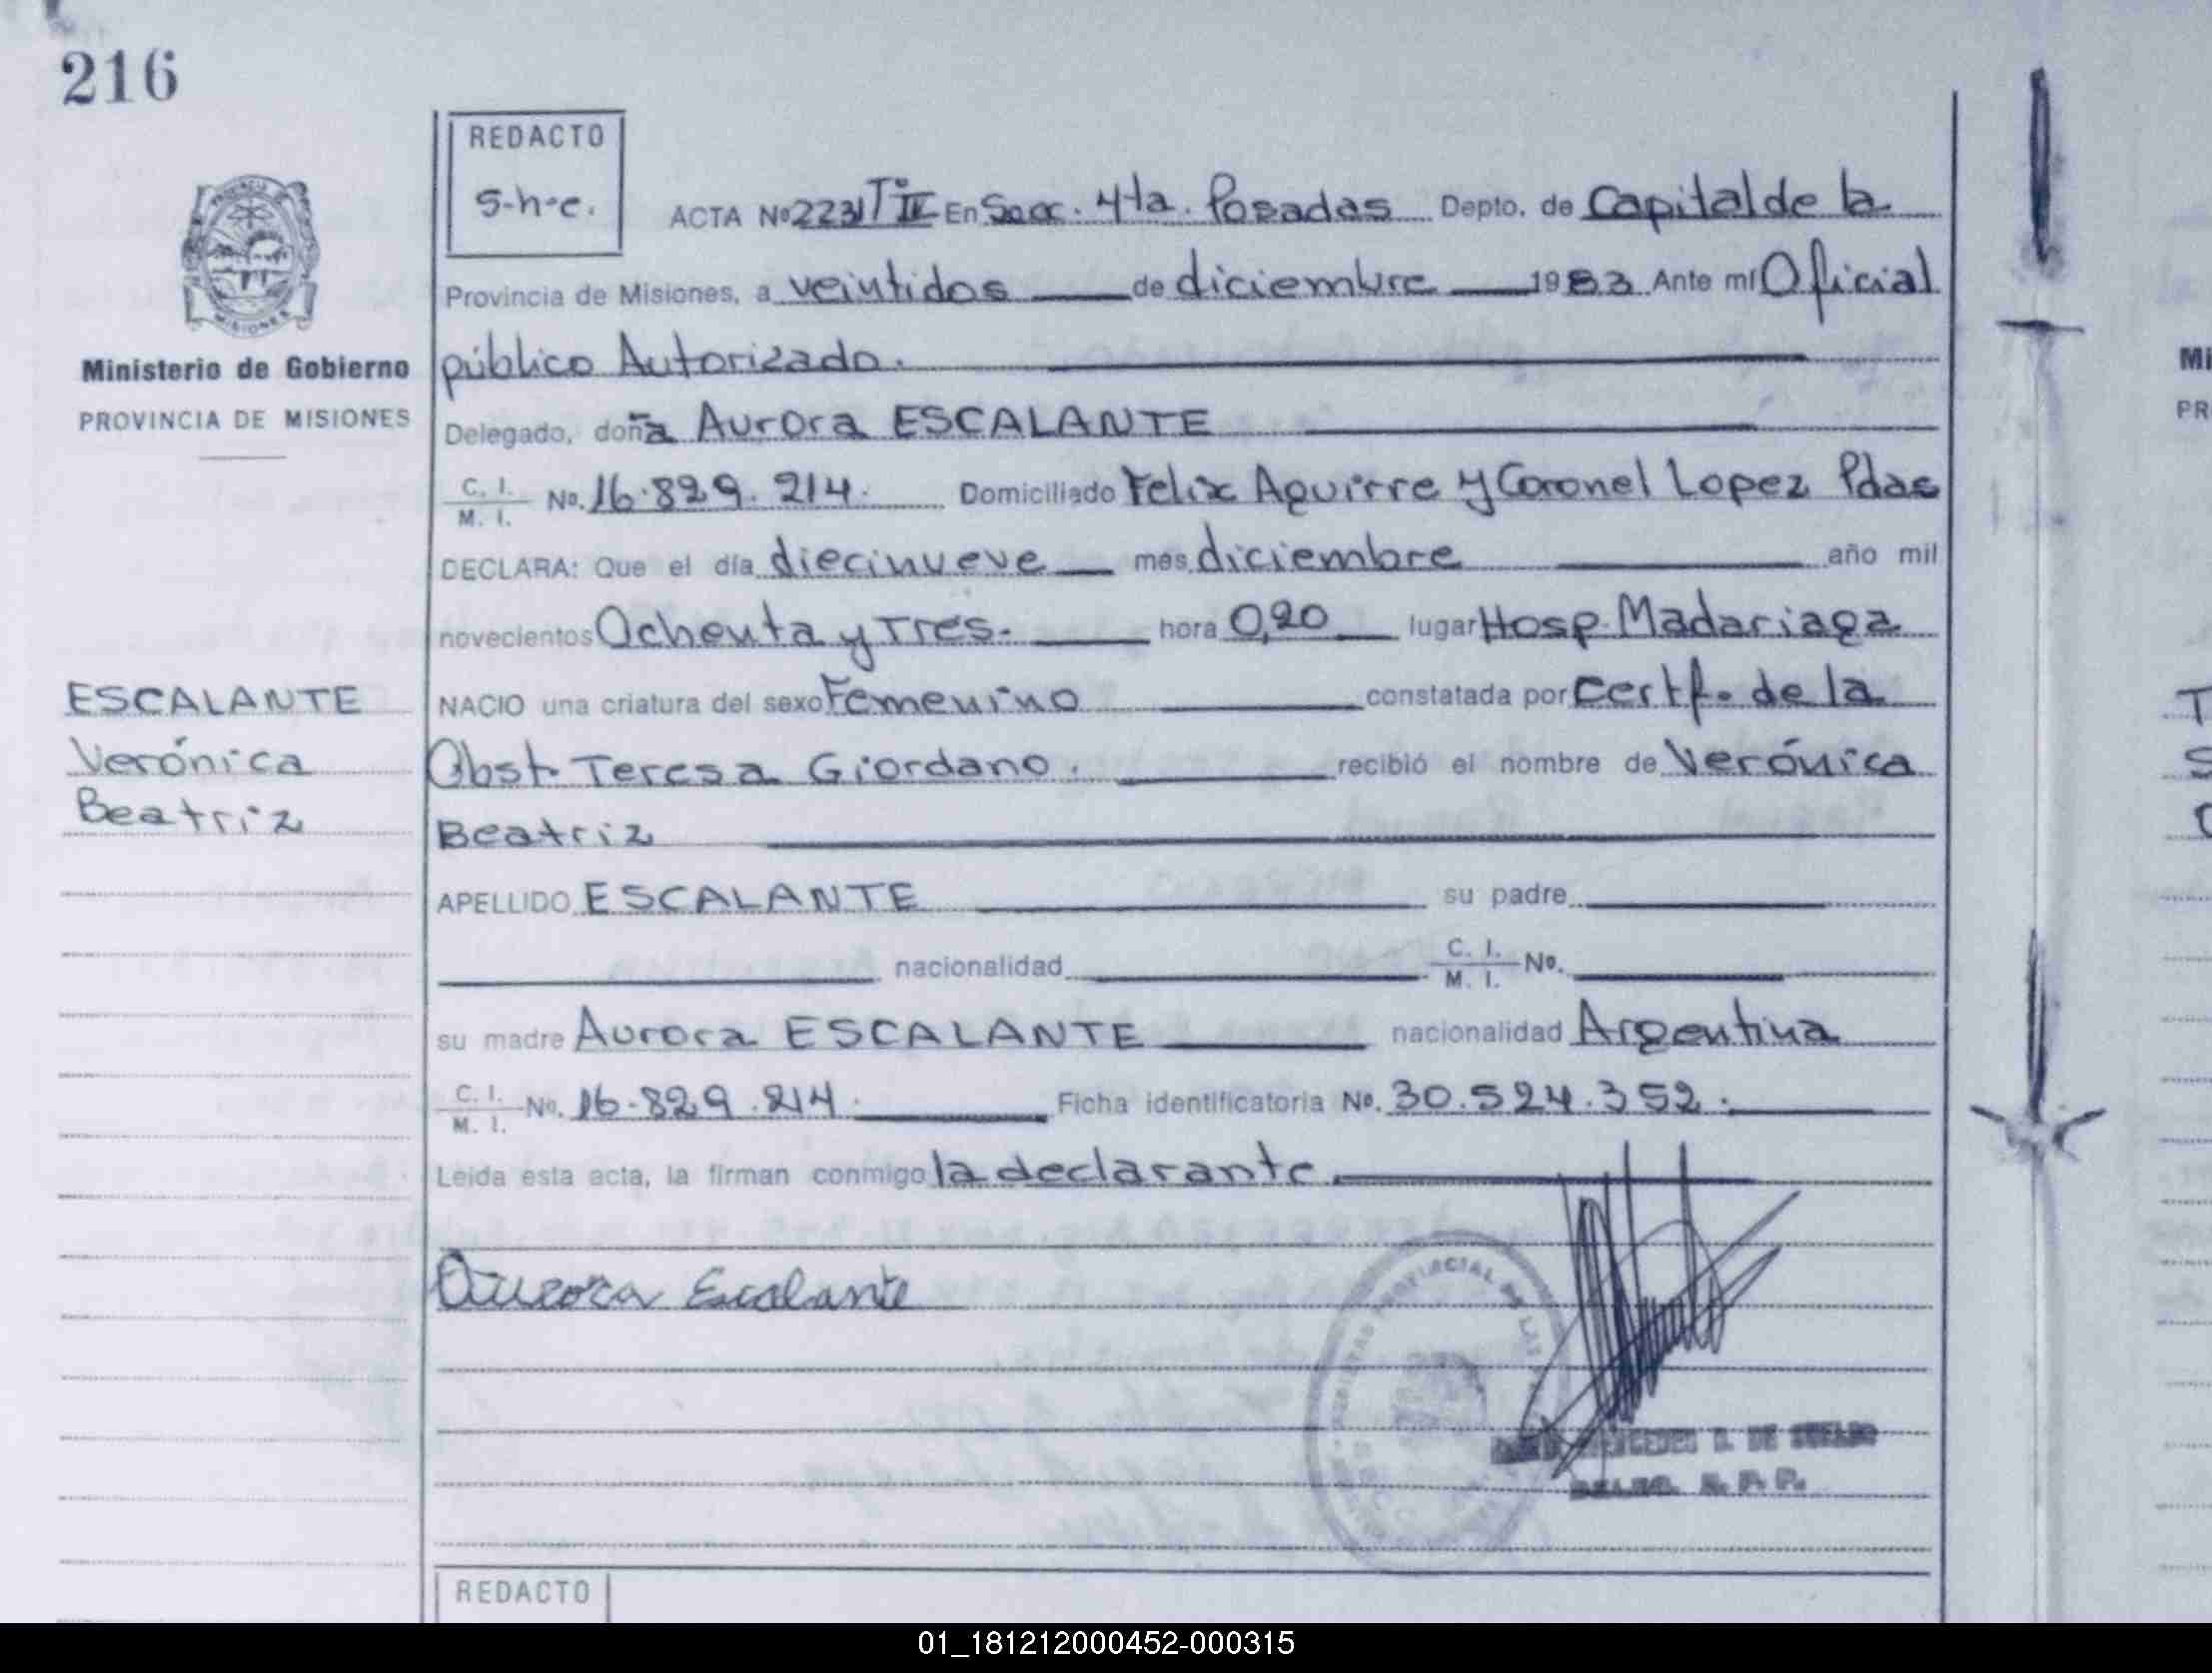 216
REDACTO
S-h-c.
ACTA Nº 2231 Tº IV En Secc. 4ta. Posadas Depto. de Capital de la
Provincia de Misiones, a veintidos de diciembre 1983 Ante mí Oficial
público Autorizado.
Ministerio de Gobierno
PROVINCIA DE MISIONES
Delegado, doña Aurora ESCALANTE
C. I. M. I. No. 16.829.214. Domiciliado Felix Aguirre y Coronel Lopez Pdas
DECLARA: Que el día diecinueve mes diciembre año mil
novecientos Ochenta y Tres. hora 0,20 lugar Hosp. Madariaga
NACIO una criatura del sexo Femenino constatada por certf. de la
Obst. Teresa Giordano. recibió el nombre de Verónica
Beatriz
ESCALANTE
Verónica
Beatriz
APELLIDO ESCALANTE su padre
nacionalidad C. I. M. I. Nº.
su madre Aurora ESCALANTE nacionalidad Argentina
C. I. M. I. No. 16.829.214. Ficha identificatoria Nº. 30.524.352.
Leída esta acta, la firman conmigo la declarante.
Aurora Escalante
PROVINCIAL DE LAS
MERCEDES
REDACTO
MISIONES
Mi
PR
01_181212000452-000315